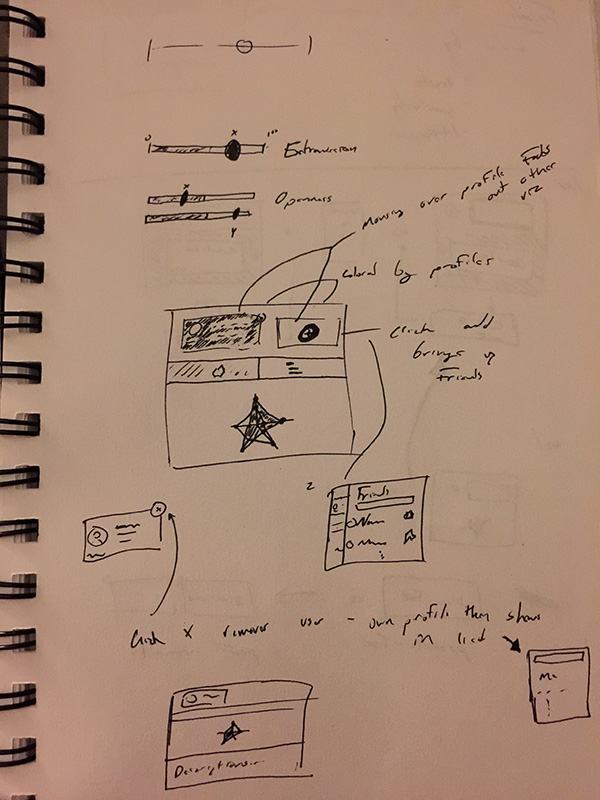 0 x 100
Extraversion
x
Openness
y
Mousing over profile Fades
out other
viz
Colored by profiles
Click add
brings up
Friends
2
Friends
x
Name
Click X remover user - own profile then shows
in list
Me